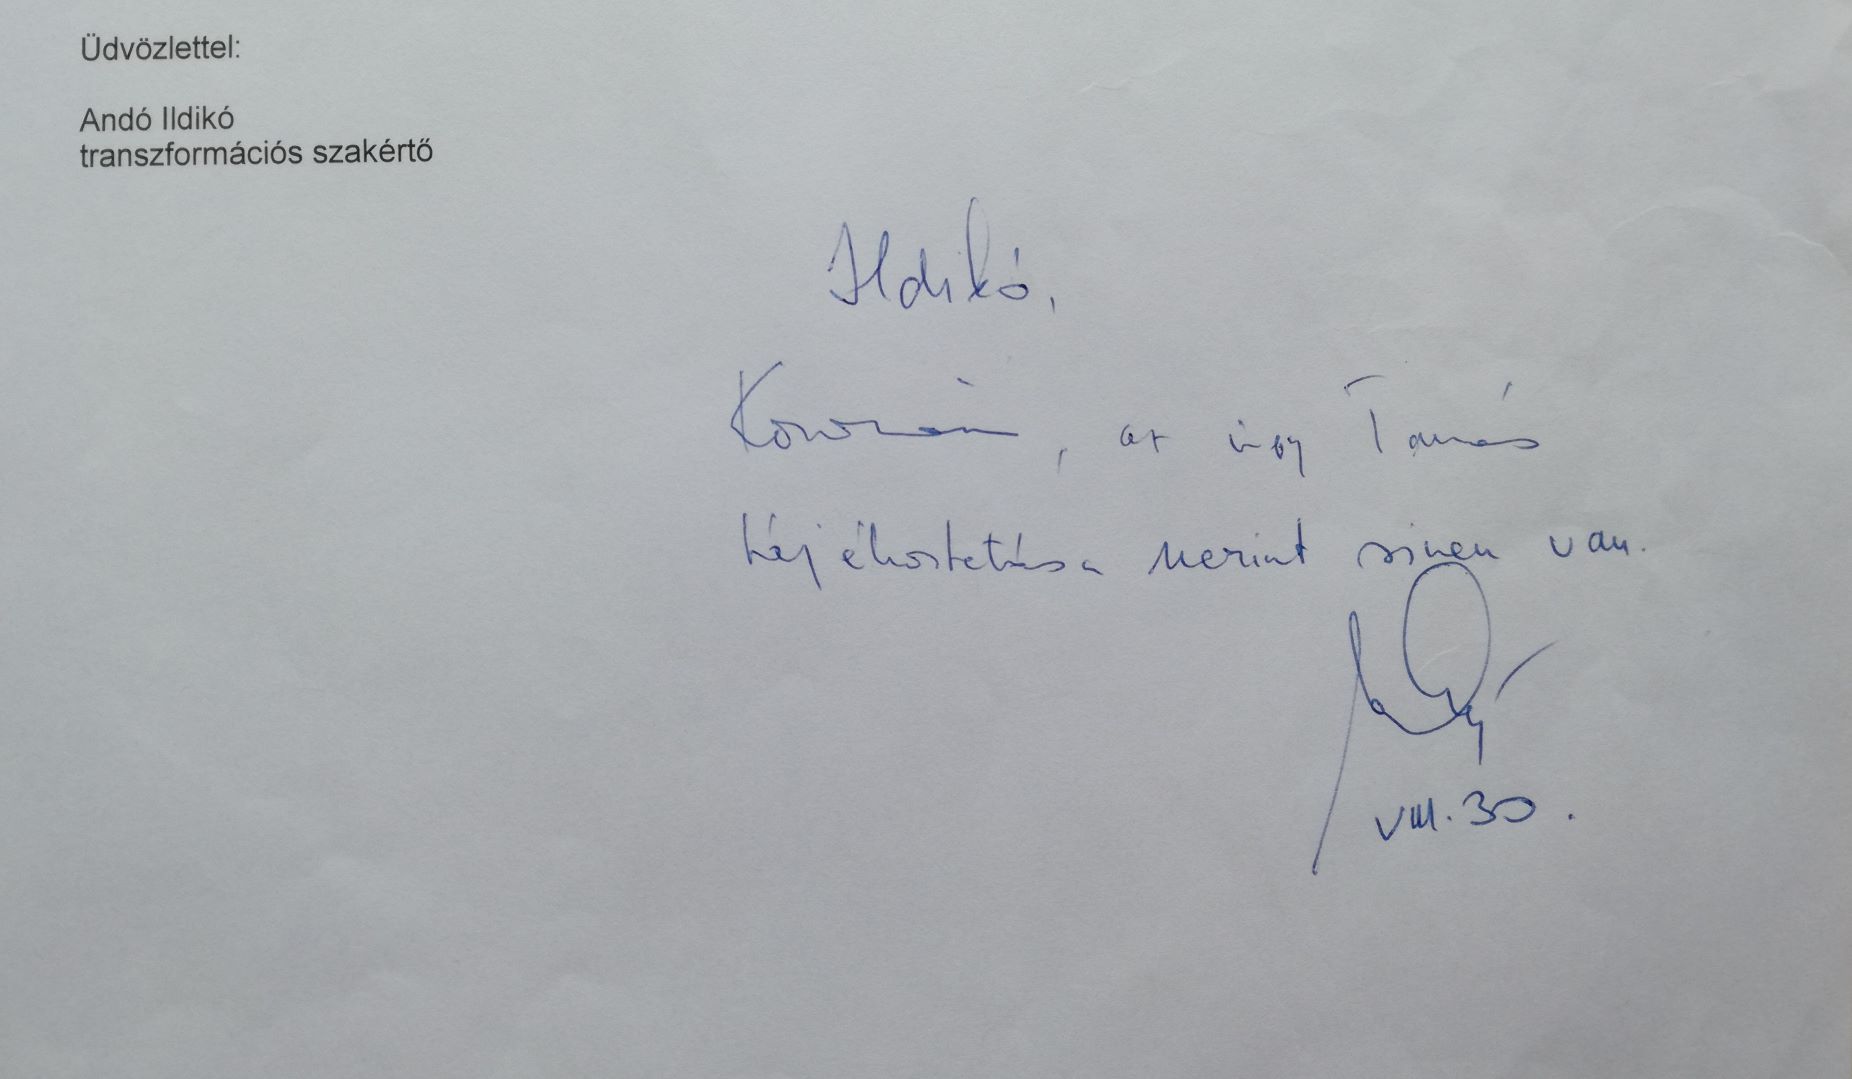 Üdvözlettel:
Andó Ildikó
transzformációs szakértő
Ildikó,
Köszönöm, az ügy Tamás
tájékoztatása szerint sínen van.
VIII. 30.